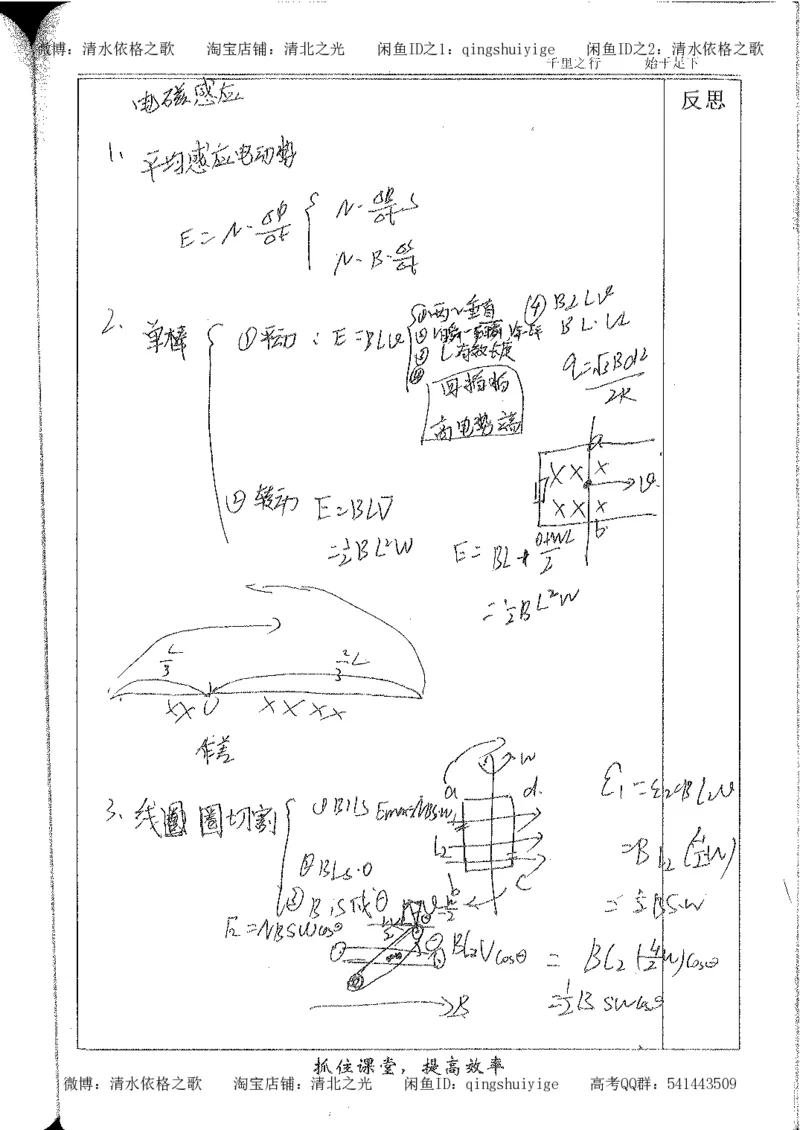 微博：清水依格之歌 淘宝店铺：清北之光 闲鱼ID之1：qingshuiyige 闲鱼ID之2：清水依格之歌
千里之行 始于足下
反思
电磁感应
1. 平均感应电动势
E = N·ΔΦ/Δt { N·ΔB/Δt S
N·B·ΔS/Δt
2. 单棒 { ①平动：E=BLv
①两两垂直 (4) B⊥L V
③ L有效长度 BL·V⊥
④
q=√3Bdl2/2R
四指指
高电势端
a
XX X
→v
XX X
b
②转动 E=BLV̅
=½BL²W
E= BL * (0+WL)/2
=½BL²W
L/3 2/3 L
XX O XXXX
作差
3. 线圈 圈切割 { ①B∥S Emax=NBSW
②B⊥S·0
③B与S成θ
E=NBSWcosθ
W
a d
L2
b c
BL2Vcosθ = BL2(L1/2 W)cosθ
=½BSWcosθ
→B
=BL2(L1/2 W)
=½BSW
抓住课堂，提高效率
微博：清水依格之歌 淘宝店铺：清北之光 闲鱼ID：qingshuiyige 高考QQ群：541443509